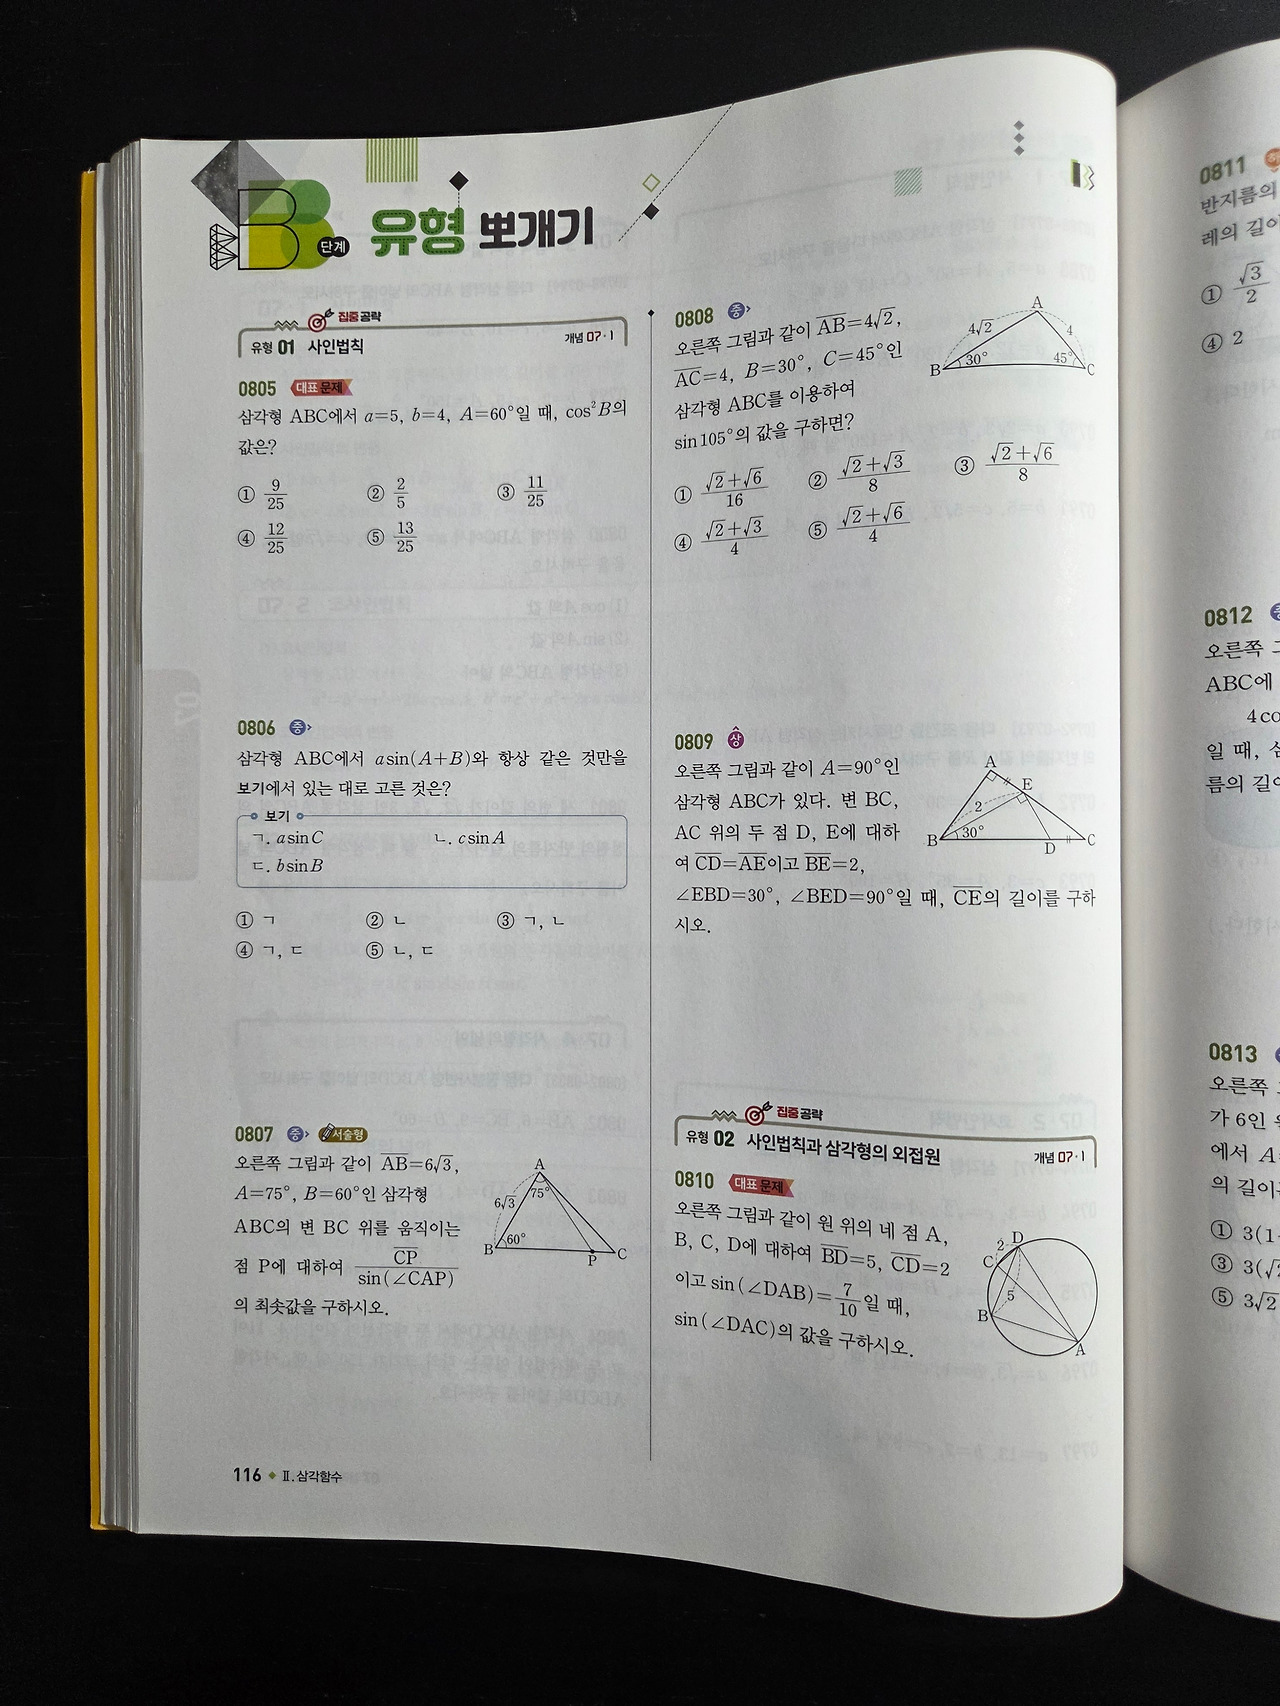 B 단계 유형 뽀개기
집중공략
유형 01 사인법칙 개념 07·1
0805 대표문제
삼각형 ABC에서 a=5, b=4, A=60°일 때, cos²B의
값은?
① 9/25 ② 2/5 ③ 11/25
④ 12/25 ⑤ 13/25
0806 중
삼각형 ABC에서 a sin(A+B)와 항상 같은 것만을
보기에서 있는 대로 고른 것은?
보기
ㄱ. a sin C ㄴ. c sin A
ㄷ. b sin B
① ㄱ ② ㄴ ③ ㄱ, ㄴ
④ ㄱ, ㄷ ⑤ ㄴ, ㄷ
0807 중 서술형
오른쪽 그림과 같이 AB=6√3,
A=75°, B=60°인 삼각형
ABC의 변 BC 위를 움직이는
점 P에 대하여 CP/sin(∠CAP)
의 최솟값을 구하시오.
A
6√3 75°
60°
B P C
116 ◆ Ⅱ. 삼각함수
0808 중
오른쪽 그림과 같이 AB=4√2,
AC=4, B=30°, C=45°인
삼각형 ABC를 이용하여
sin 105°의 값을 구하면?
A
4√2 4
B 30° 45° C
① (√2+√6)/16 ② (√2+√3)/8 ③ (√2+√6)/8
④ (√2+√3)/4 ⑤ (√2+√6)/4
0809 상
오른쪽 그림과 같이 A=90°인
삼각형 ABC가 있다. 변 BC,
AC 위의 두 점 D, E에 대하
여 CD=AE이고 BE=2,
∠EBD=30°, ∠BED=90°일 때, CE의 길이를 구하
시오.
A
E
2
B 30° D C
집중공략
유형 02 사인법칙과 삼각형의 외접원 개념 07·1
0810 대표문제
오른쪽 그림과 같이 원 위의 네 점 A,
B, C, D에 대하여 BD=5, CD=2
이고 sin(∠DAB)=7/10일 때,
sin(∠DAC)의 값을 구하시오.
2 D
C
5
B
A
0811
반지름의
레의 길이
① √3/2
④ 2
0812
오른쪽
ABC에
4co
일 때,
름의 길이
0813
오른쪽
가 6인
에서 A
의 길이
① 3(1
③ 3(√
⑤ 3√2